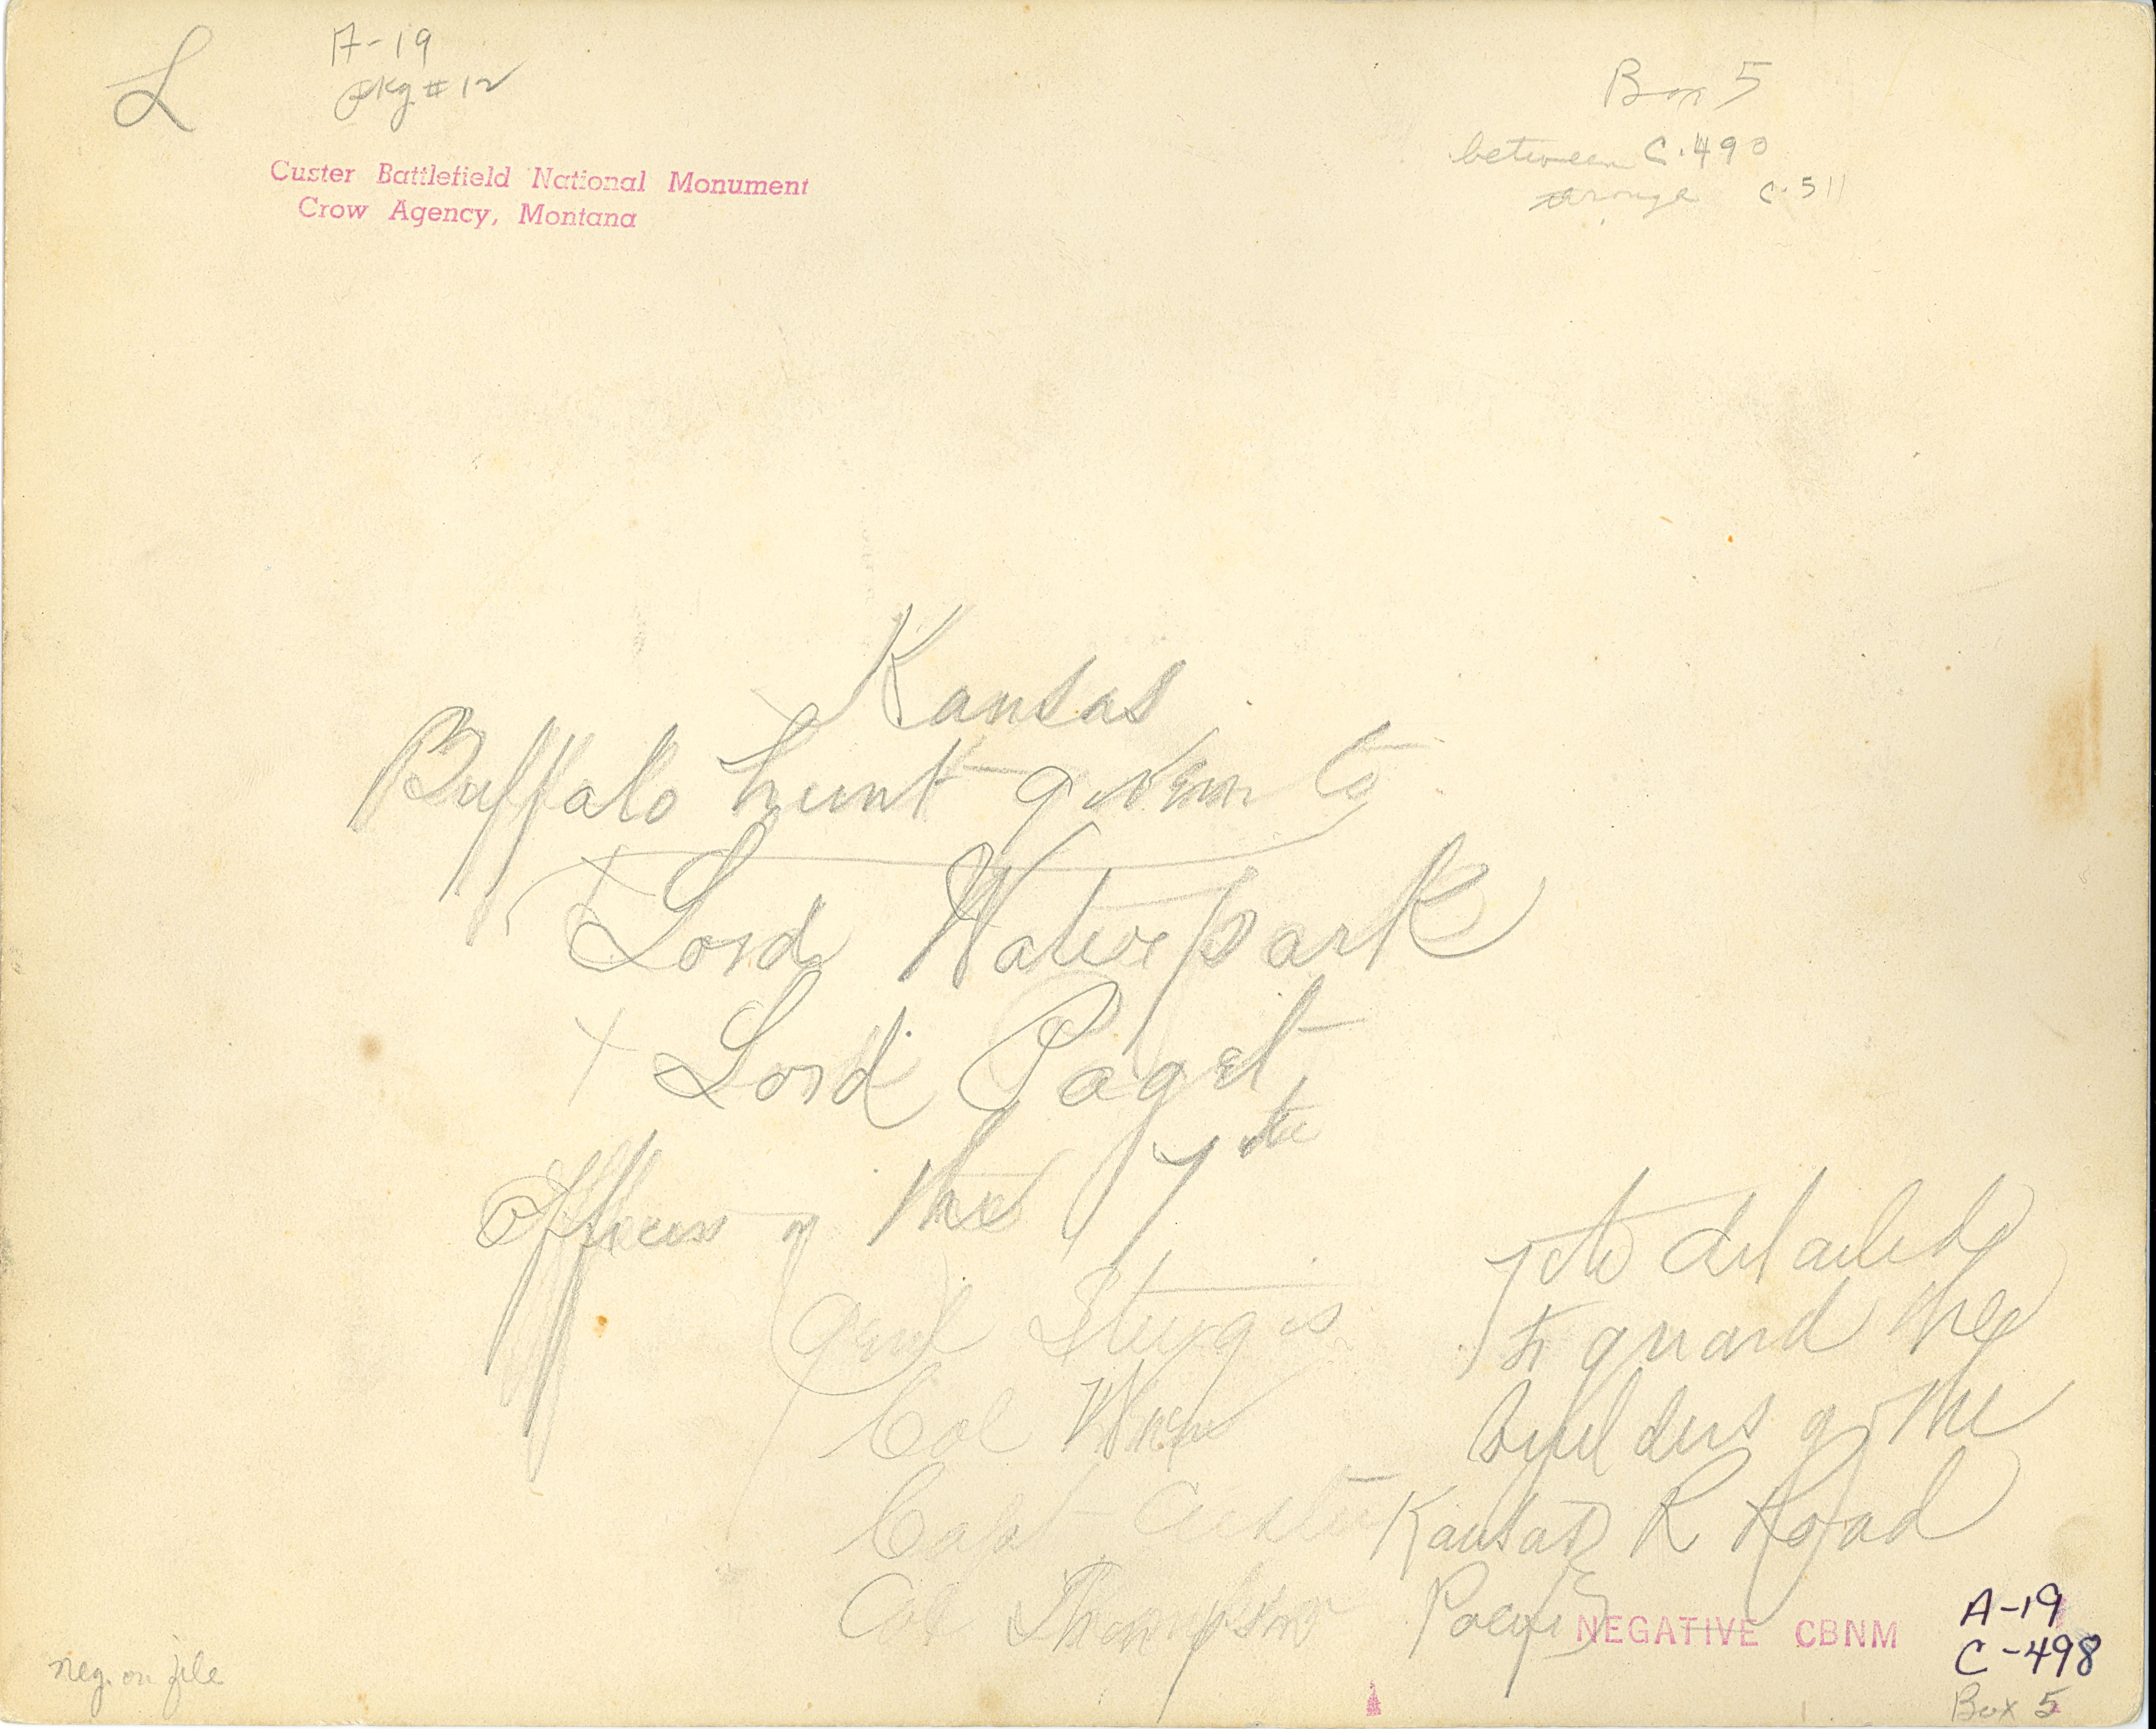 L
A-19
pkg # 12
Box 5
between C-490
C-511
Custer Battlefield National Monument
Crow Agency, Montana
Kansas
Buffalo hunt given to
Lord Waterpark
x Lord Paget
Officers of the 7th
Genl Sturgis
Col
Capt Custer
Col Thompson
7th detailed
to guard the
builders of the
Kansas R Road
Pacific
NEGATIVE CBNM
A-19
C-498
Box 5
neg. on file